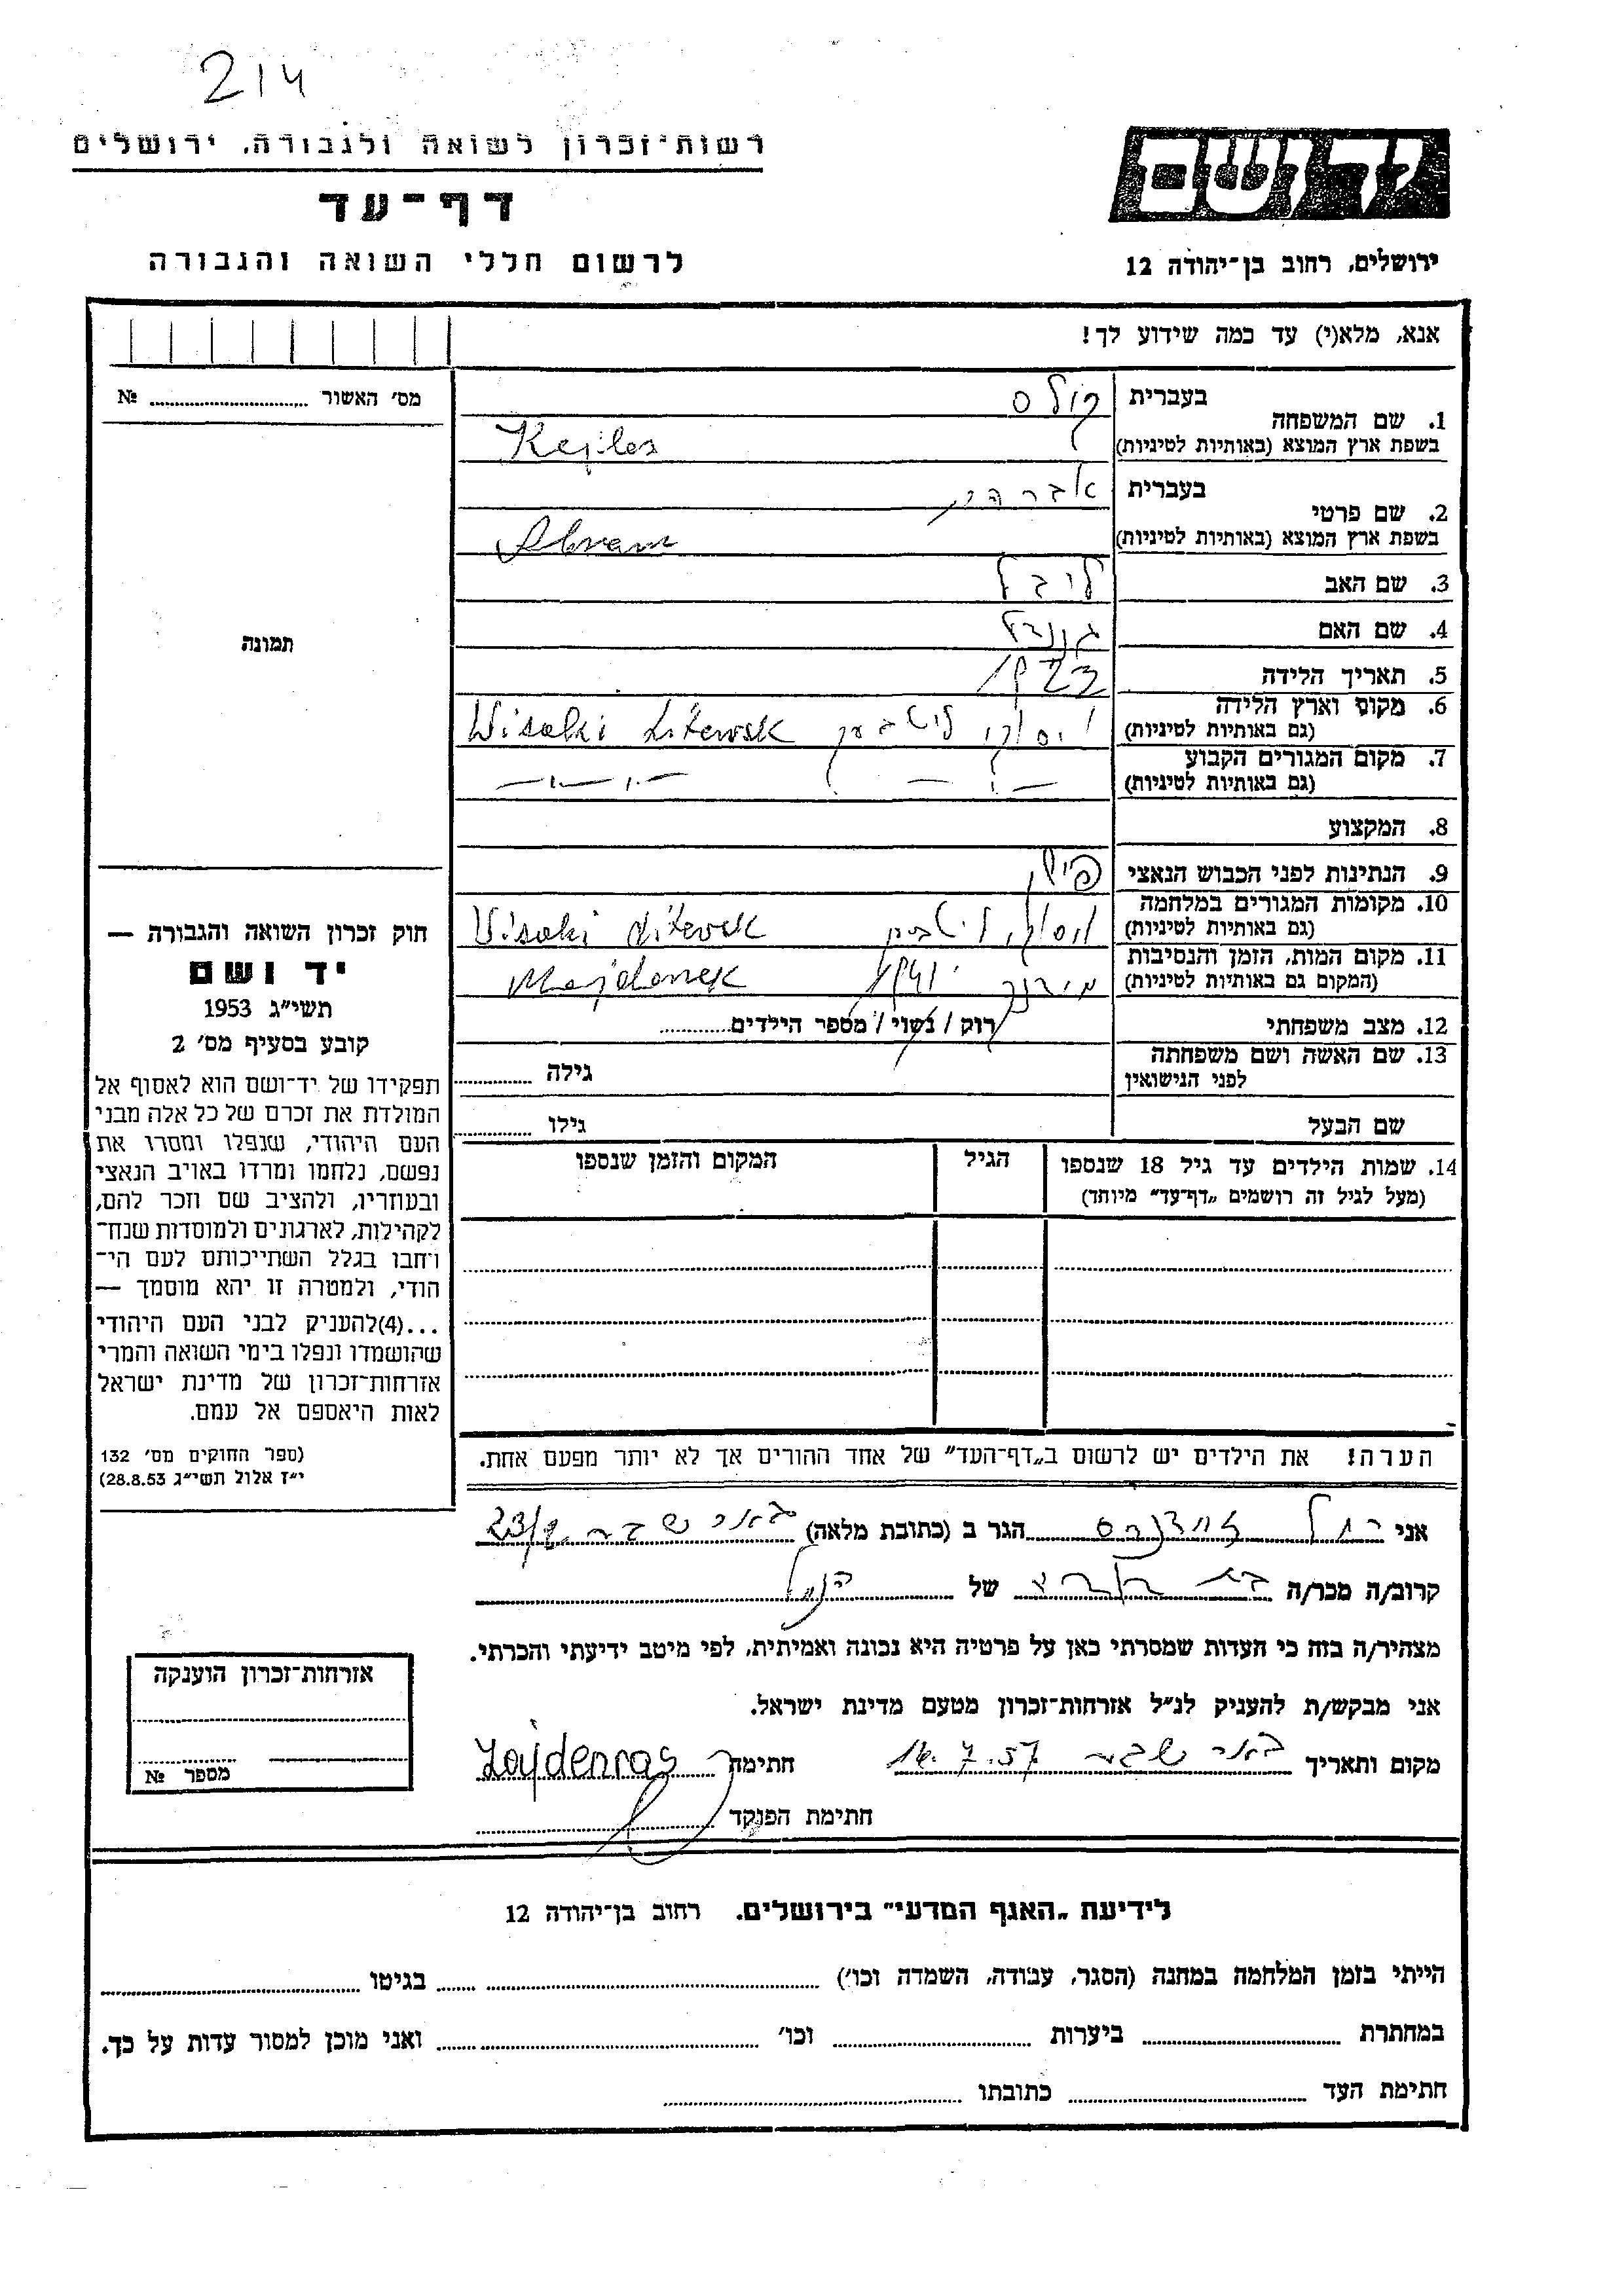 214
רשות־זכרון לשואה ולגבורה, ירושלים
דף־עד
לרשום חללי השואה והגבורה
יד ושם
ירושלים, רחוב בן־יהודה 12
אנא, מלא(י) עד כמה שידוע לך!
מס׳ האשור № 
1. שם המשפחה
בעברית
בשפת ארץ המוצא (באותיות לטיניות) Kejles
2. שם פרטי
בעברית
אברהם
בשפת ארץ המוצא (באותיות לטיניות) Abram
3. שם האב
4. שם האם
5. תאריך הלידה
6. מקום וארץ הלידה
(גם באותיות לטיניות) Wisoki Litewsk
7. מקום המגורים הקבוע
(גם באותיות לטיניות)
8. המקצוע
9. הנתינות לפני הכבוש הנאצי
10. מקומות המגורים במלחמה
(גם באותיות לטיניות) Visoki Litevsk
11. מקום המות, הזמן והנסיבות
(המקום גם באותיות לטיניות) Majdanek
12. מצב משפחתי רוק / נשוי / מספר הילדים
13. שם האשה ושם משפחתה
לפני הנישואין
גילה
שם הבעל
גילו
14. שמות הילדים עד גיל 18 שנספו
(מעל לגיל זה רושמים „דף־עד״ מיוחד)
הגיל
המקום והזמן שנספו
הערה! את הילדים יש לרשום ב„דף־העד״ של אחד ההורים אך לא יותר מפעם אחת.
תמונה
חוק זכרון השואה והגבורה —
יד ושם
תשי״ג 1953
קובע בסעיף מס׳ 2
תפקידו של יד־ושם הוא לאסוף אל
המולדת את זכרם של כל אלה מבני
העם היהודי, שנפלו ומסרו את
נפשם, נלחמו ומרדו באויב הנאצי
ובעוזריו, ולהציב שם וזכר להם,
לקהילות, לארגונים ולמוסדות שנח־
רחבו בגלל השתייכותם לעם הי־
הודי, ולמטרה זו יהא מוסמך —
...(4)להעניק לבני העם היהודי
שהושמדו ונפלו בימי השואה והמרי
אזרחות־זכרון של מדינת ישראל
לאות היאספם אל עמם.
(ספר החוקים מס׳ 132
י״ז אלול תשי״ג 28.8.53)
אני רחל הגר ב (כתובת מלאה) באר שבע
קרוב/ה מכר/ה של
מצהיר/ה בזה כי העדות שמסרתי כאן על פרטיה היא נכונה ואמיתית, לפי מיטב ידיעתי והכרתי.
אני מבקש/ת להעניק לנ״ל אזרחות־זכרון מטעם מדינת ישראל.
מקום ותאריך באר שבע 16.7.57 חתימה Zajdenras
חתימת הפוקד
אזרחות־זכרון הוענקה
מספר №
לידיעת „האגף המדעי״ בירושלים. רחוב בן־יהודה 12
הייתי בזמן המלחמה במחנה (הסגר, עבודה, השמדה וכו׳) בגיטו
במחתרת ביערות וכו׳ ואני מוכן למסור עדות על כך.
חתימת העד כתובתו